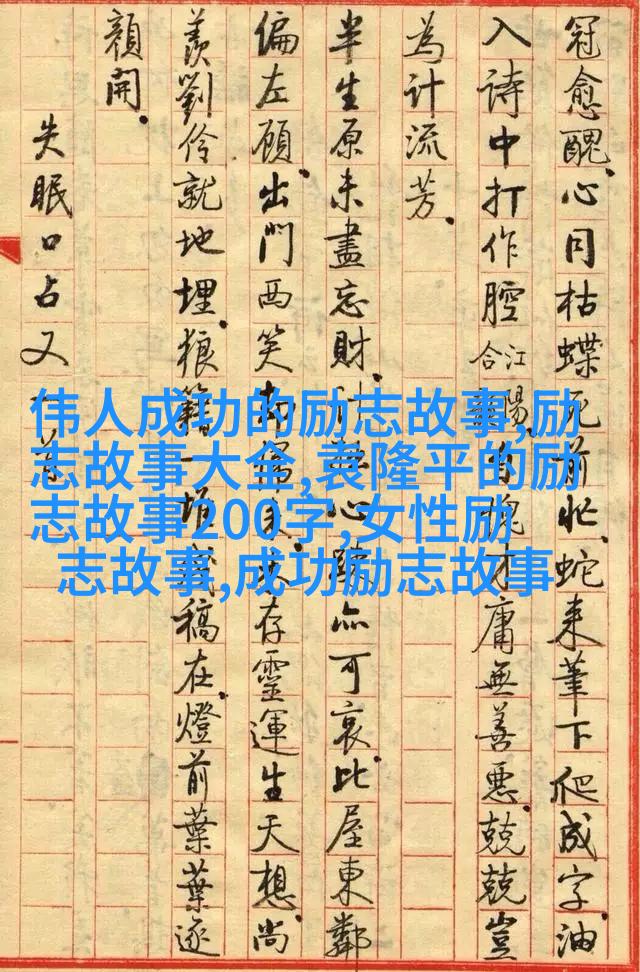 冠愈醜。心同枯蝶死前忙。蛇來筆下爬成字。油
入詩中打作腔江合陽。愧才庸無善惡。兢兢豈
為計流芳。
半生原未盡忘財。計心亦可哀。比屋東鄰
偏左顧。出門西笑存靈運生天想。尚
羨劉伶就地埋。狼籍一稿在。燈前葉葉逐
顏開。
失眠口占又一首
伟人成功的励志故事,励
志故事大全,袁隆平的励
志故事200字,女性励
志故事,成功励志故事